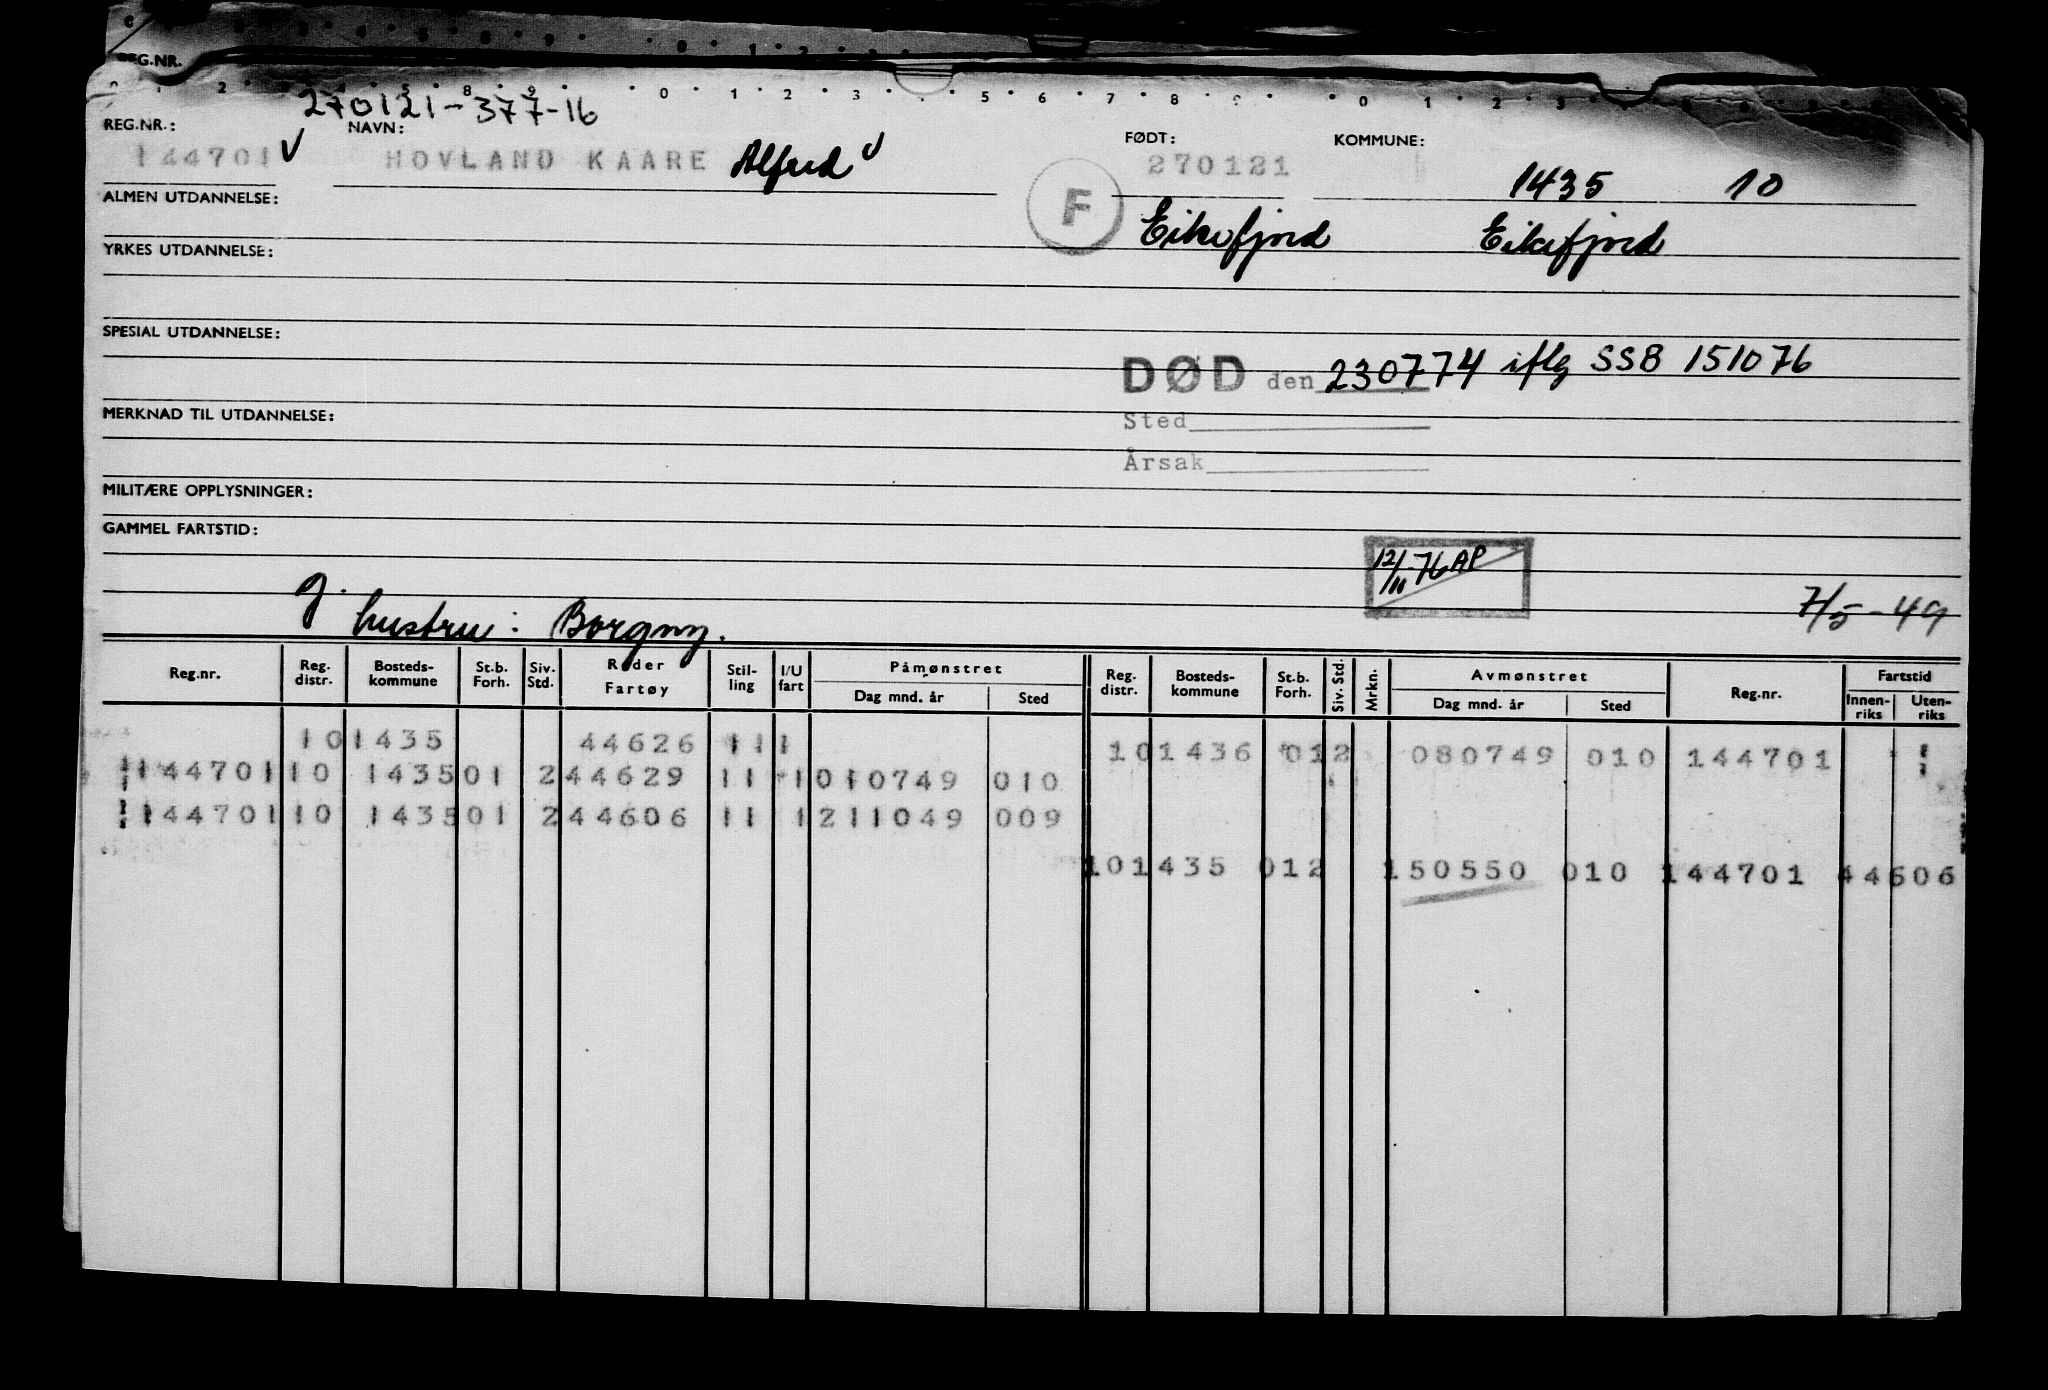 REG.NR.
270121-377-16
REG.NR.: NAVN: FØDT: KOMMUNE:
144701 V HOVLAND KAARE Alfred V 270121 1435 10
ALMEN UTDANNELSE: F Eikefjord Eikefjord
YRKES UTDANNELSE:
SPESIAL UTDANNELSE:
DØD den 230774 iflg SSB 151076
MERKNAD TIL UTDANNELSE: Sted
Årsak
MILITÆRE OPPLYSNINGER:
GAMMEL FARTSTID:
12/11-76 AP
g. 7/5-49
hustru: Borgny.
Reg.nr. Reg. distr. Bosteds-kommune St.b. Forh. Siv. Std. Reder Fartøy Stil-ling I/U fart Påmønstret Dag mnd. år Sted Reg. distr. Bosteds-kommune St.b. Forh. Siv. Std. Mrkn. Avmønstret Dag mnd. år Sted Reg.nr. Fartstid Innen-riks Uten-riks
101435 44626 111 101436 012 080749 010 144701
144701 10 143501 2 44629 11 1 010749 010
144701 10 143501 2 44606 11 1 211049 009
101435 012 150550 010 144701 44606